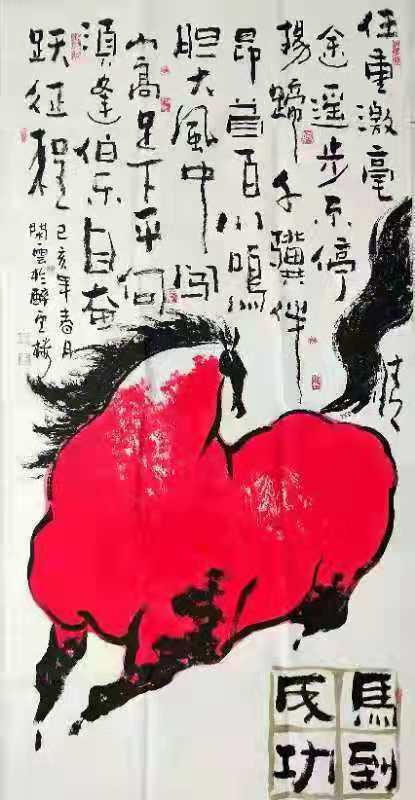 任重激
途遥步不停
扬蹄千骥伴
昂首百川鸣
胆大风中闯
山高足下平何
须逢伯乐自奋
跃征程
己亥年春月
閑雲於醉楼
馬到
成功